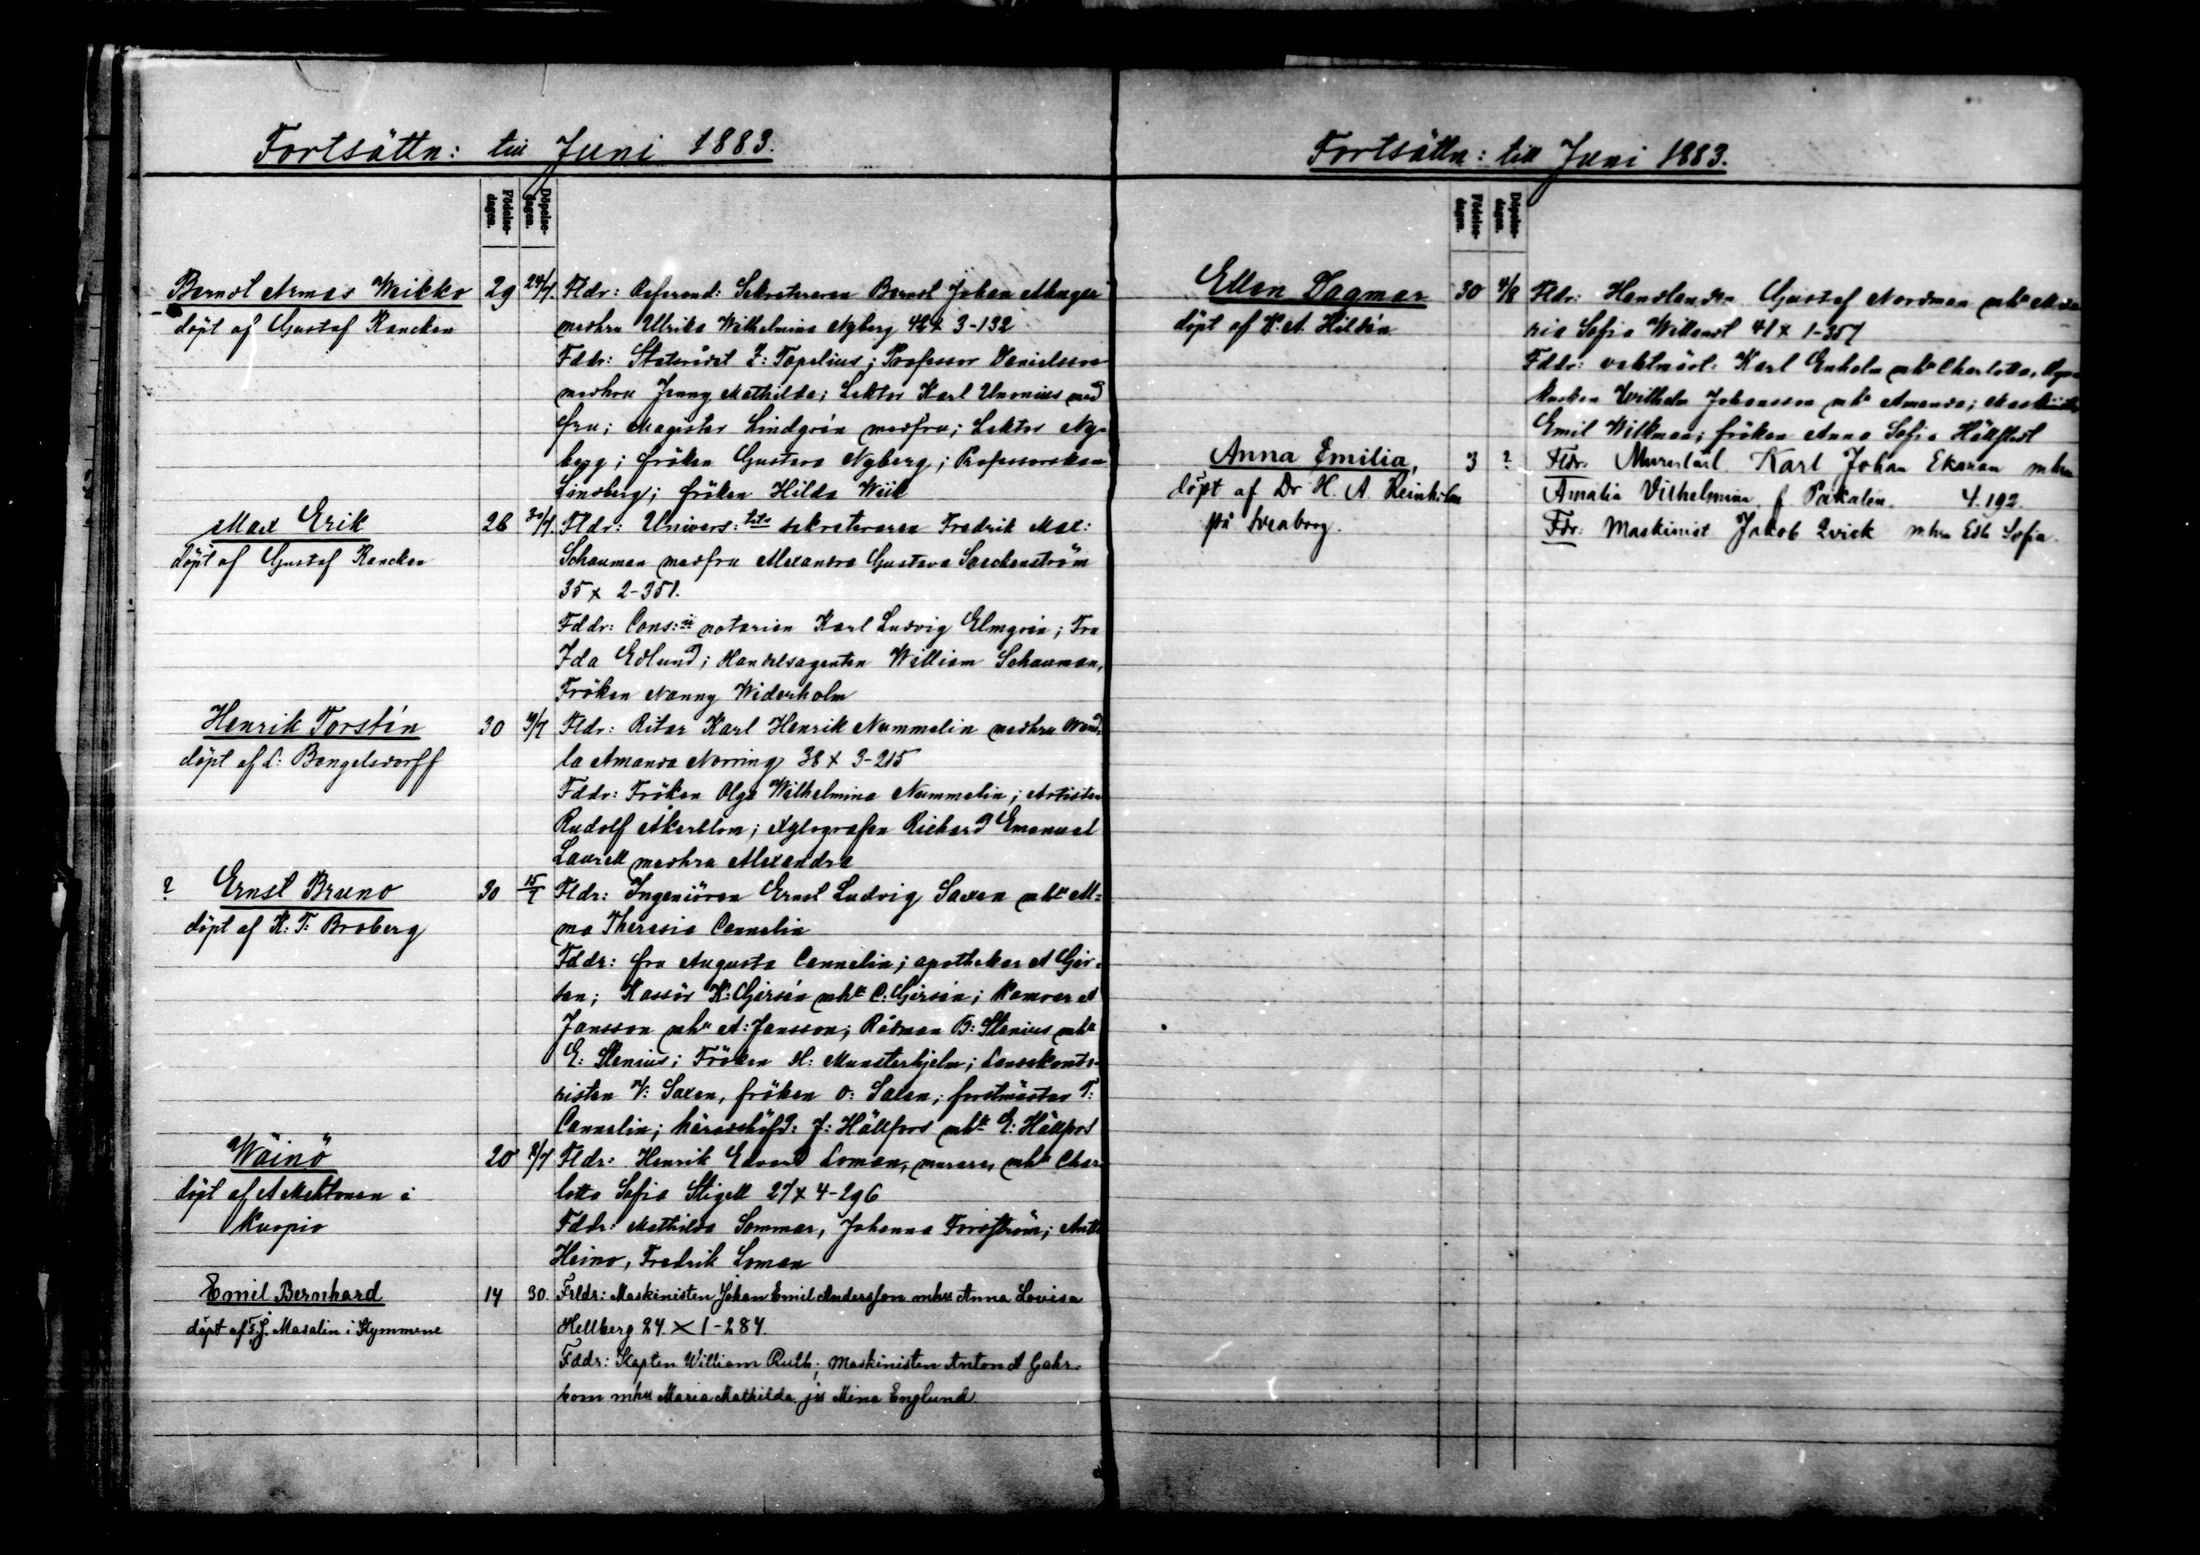 Fortsättn: till Juni 1883.
Födelse-dagen.
Döpelse-dagen.
Berndt Armas Weikko 29
döpt af Gustaf Rancken
Fldr: Referend: Sekreteraren Berndt Johan
medhru Ulrika Wilhelmina Nyberg 3-132
Fddr: Statsrådet Z: Topelius; Professor Danielsson
medhru Jenny Mathilda; Lektor Karl Unonius med
fru; Magister Lindgrén medfru; Lektor Ny-
berg; fröken Gustava Nyberg; Professorskan
Lindberg; fröken Hilda Wiik
Max Erik 26 30/7.
döpt af Gustaf Rancken
Fldr: Univers: sekreteraren Fredrik Max:
Schauman medfru Alexandra Gustava Saeckenström
35 x 2-351.
Fddr: Cons: notarien Karl Ludvig Elmgrén; Fru
Ida Edlund; Handelsagenten William Schauman,
Fröken Nanny Widerholm
Henrik Torstén 30
döpt af L: Bengelsdorff
Fldr: Ritar Karl Henrik Nummelin medhru Wend-
la Amanda Norring 38 x 3-215
Fddr: Fröken Olga Wilhelmina Nummelin; Artisten
Rudolf Åkerblom; Xylografen Richard Emanuel
Laurell medhru Alexandra
? Ernst Bruno 30 15/7
döpt af K: T: Broberg
Fldr: Ingeniören Ernst Ludvig Saxen mhu Al-
ma Theresia Cannelin
Fddr: fru Augusta Cannelin; apothekar A Gir-
sen; Kassör K: Girsén mhu C: Girsén;
Jansson mhu A: Jansson; Rådman B: Stenius mhu
E: Stenius; Fröken H: Munsterhjelm;
risten V: Saxen, fröken O: Saxen; forstmästar T:
Cannelin; häradshöfd: J: Hällfors mhu E: Hällfors
Wäinö 20
döpt af A Mektonen i
Kuopio
Fldr: Henrik Edvard Loman, murare, mhu Char-
lotta Sofia Stigell 27 x 4-296
Fddr: Mathilda Sommar, Johanna Forsström; Antti
Heino, Fredrik Loman
Emil Bernhard 14 30.
döpt af F.J. Masalin i Kymmene
Frldr: Maskinisten Johan Emil Andersson mhu Anna Lovisa
Hellberg 24. x 1-284.
Fddr: Kapten William Ruth; Maskinisten Anton A Gahr-
bom mhu Maria Mathilda. Mina Englund
Fortsättn: till Juni 1883.
Födelse-dagen.
Döpelse-dagen.
Ellen Dagmar 30
döpt af K. A. Hildén
Fldr: Handlanden Gustaf Nordman mhu Ma-
ria Sofia Willandt 41 x 1-357
Fddr: vaktmäst: Karl Enholm mhu Charlotta,
Wilhelm Johansson mhu Amanda;
Emil Wikman; fröken Anna Sofia Hällstedt
Anna Emilia, 3 ?
döpt af Dr H. A. Reinholm
på Sveaborg.
Fldr. Murarlärl. Karl Johan Ekman mhru
Amalia Vilhelmina f. Pakalén. 4.192.
Fdr: Maskinist Jakob Qvick mhru Edla Sofia.